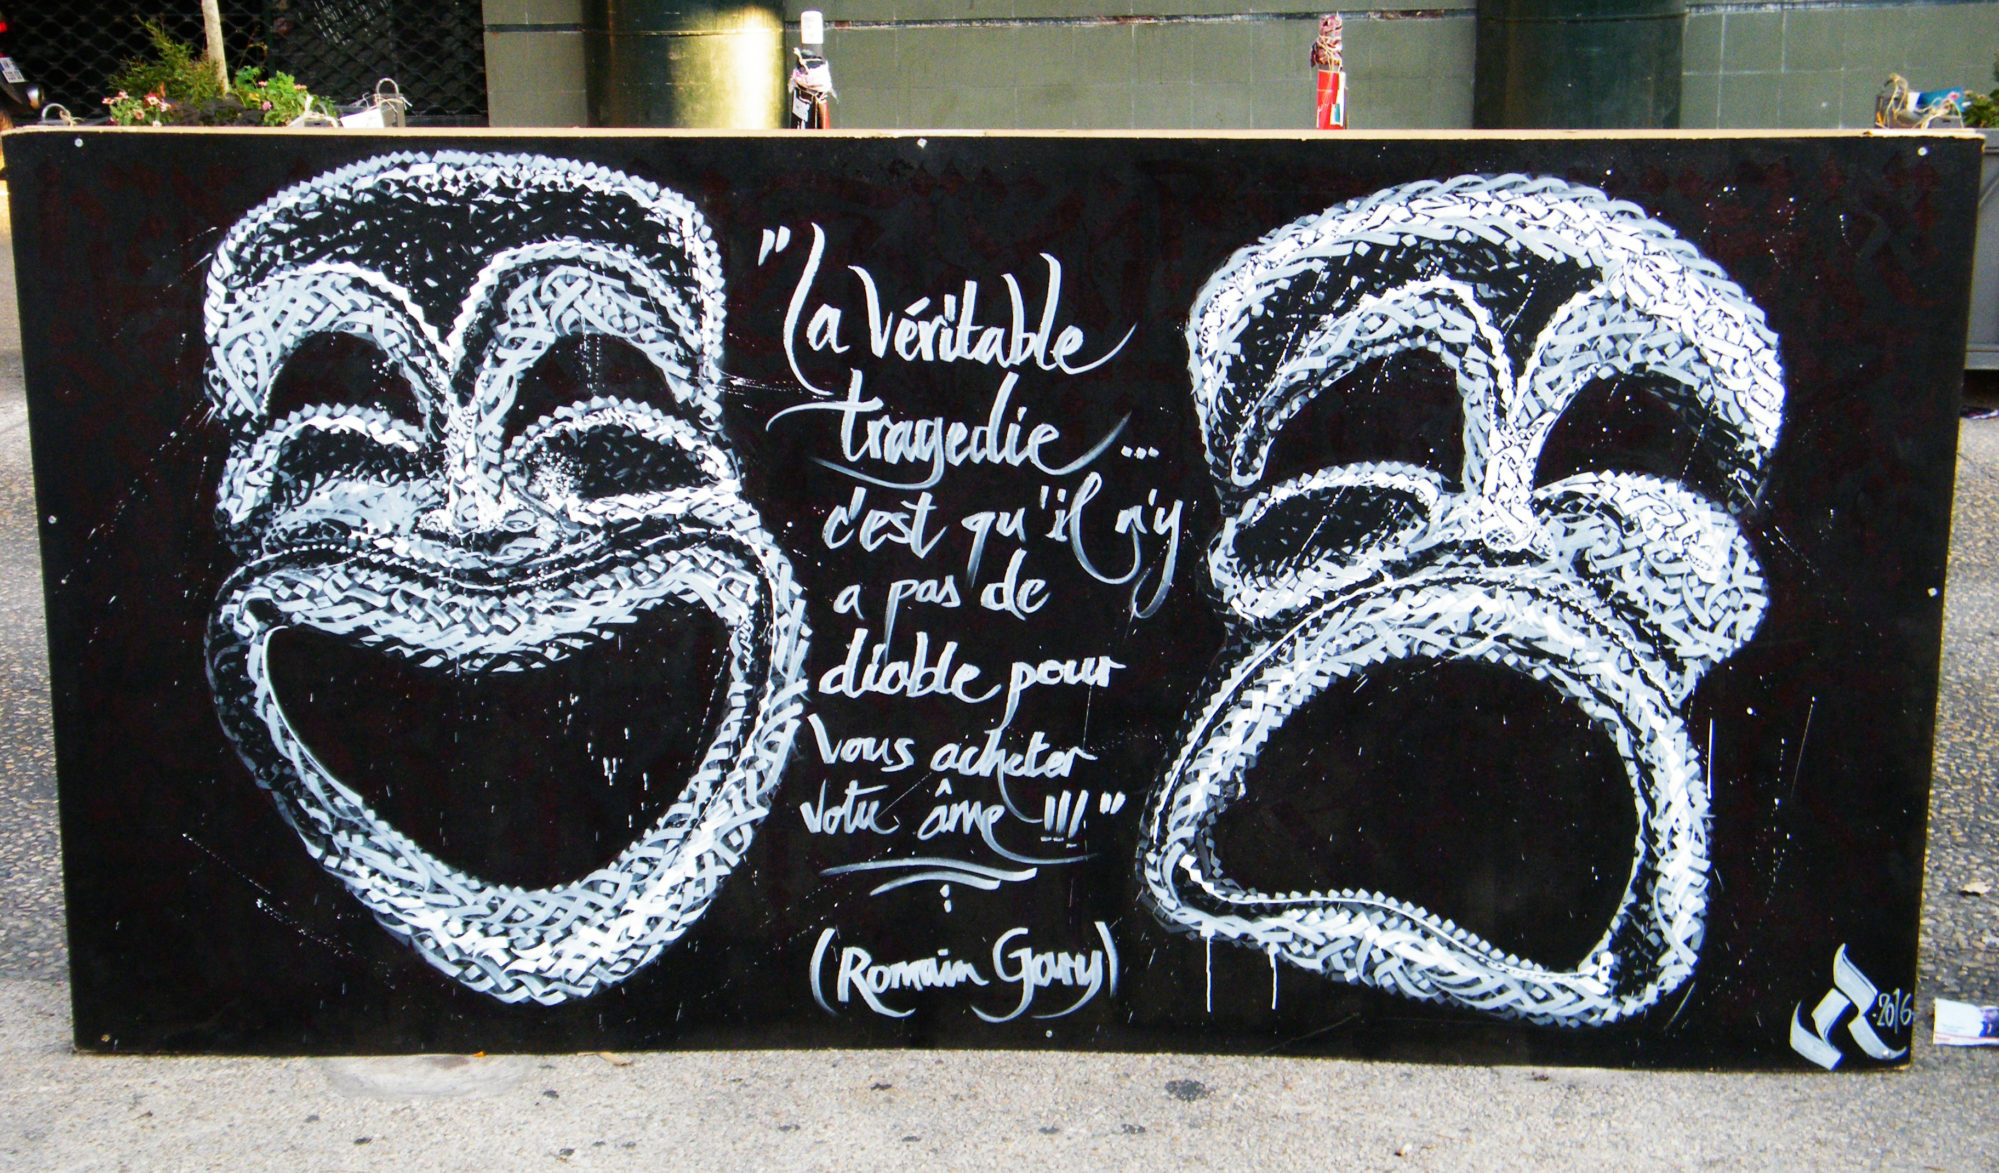 "La véritable
tragedie ...
c'est qu'il n'y
a pas de
diable pour
vous acheter
votre âme !!!"
(Romain Gary)
2016